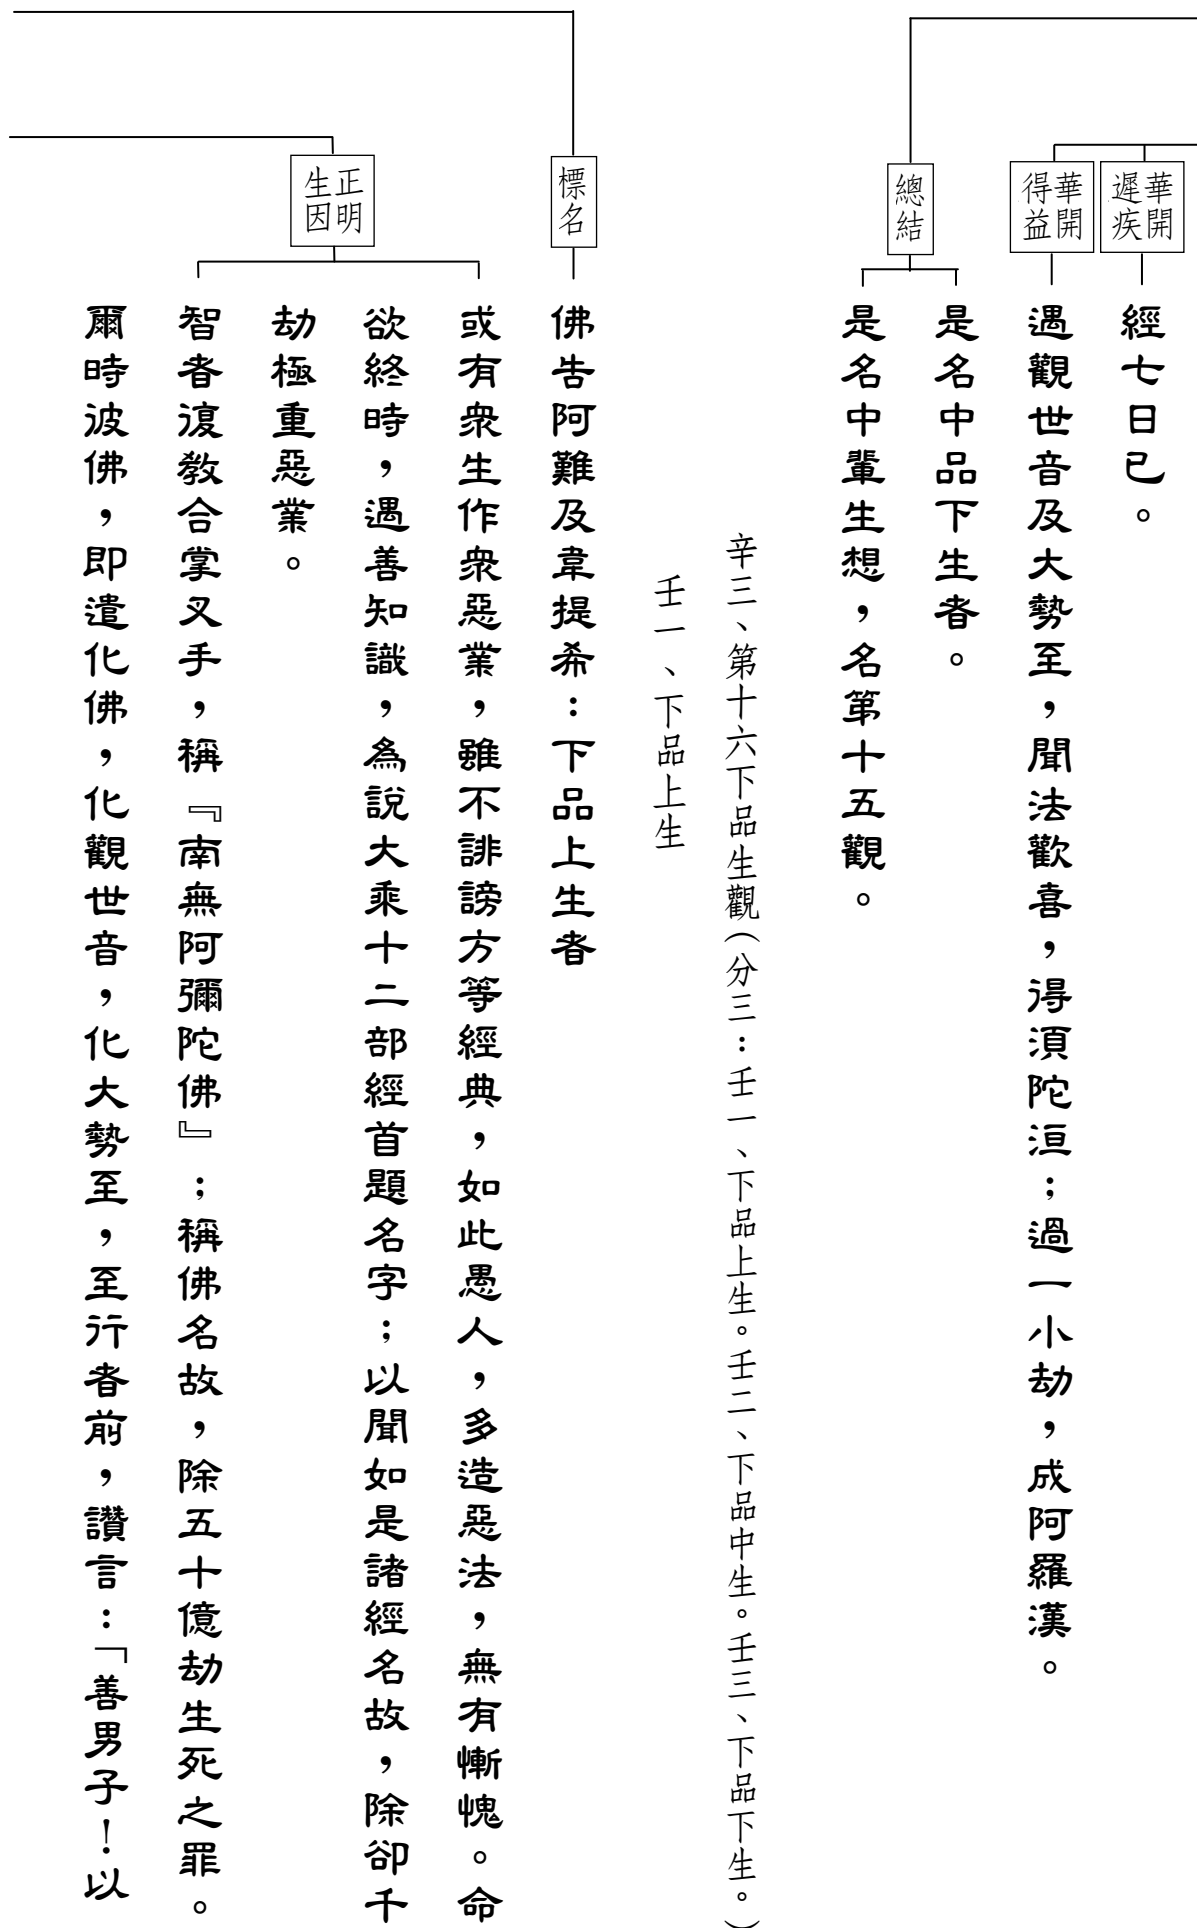 華開
遲疾
經七日已。
華開
得益
遇觀世音及大勢至，聞法歡喜，得須陀洹；過一小劫，成阿羅漢。
總結
是名中品下生者。
是名中輩生想，名第十五觀。
辛三、第十六下品生觀（分三：壬一、下品上生。壬二、下品中生。壬三、下品下生。）
壬一、下品上生
標名
佛告阿難及韋提希：下品上生者
正明
生因
或有眾生作眾惡業，雖不誹謗方等經典，如此愚人，多造惡法，無有慚愧。命
欲終時，遇善知識，為說大乘十二部經首題名字；以聞如是諸經名故，除卻千
劫極重惡業。
智者復教合掌叉手，稱『南無阿彌陀佛』；稱佛名故，除五十億劫生死之罪。
爾時彼佛，即遣化佛，化觀世音，化大勢至，至行者前，讚言：「善男子！以